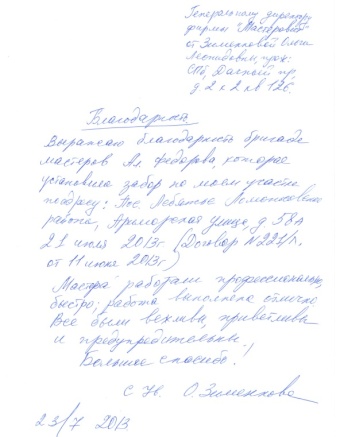 Генеральному директору
фирмы "Мастеровой"
от Зименковой Ольги
Леонидовны, прож:
СПб, Дачный пр,
д 2 к 2 кв 126.
Благодарность
Выражаю благодарность бригаде
мастеров Ал Федорова, которая
установила забор на моем участке
по адресу: Пос Лебяжье Ломоносовского
района, Приморская улица, д 58А
21 июля 2013г (Договор N 221/п.
от 11 июня 2013г.)
Мастера работали профессионально,
быстро; работа выполнена отлично
Все были вежливы, приветливы
и предупредительны.
Большое спасибо!
С Ув. О.Зименкова
23/7 2013